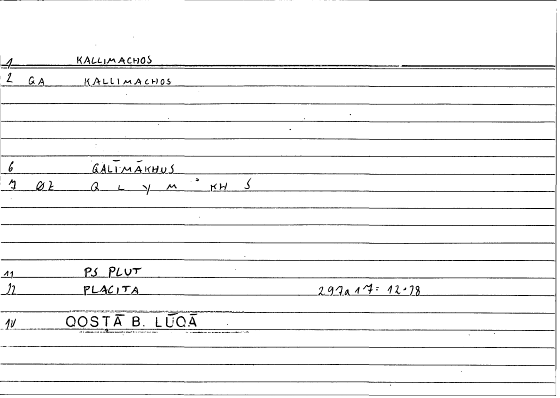 1 KALLIMACHOS
2 GA KALLIMACHOS
6 QALĪMĀKHUS
7 ØZ Q L Y M ° KH S
11 PS PLUT
12 PLACITA 297a17= 12.78
14 QOSṬĀ B. LŪQĀ